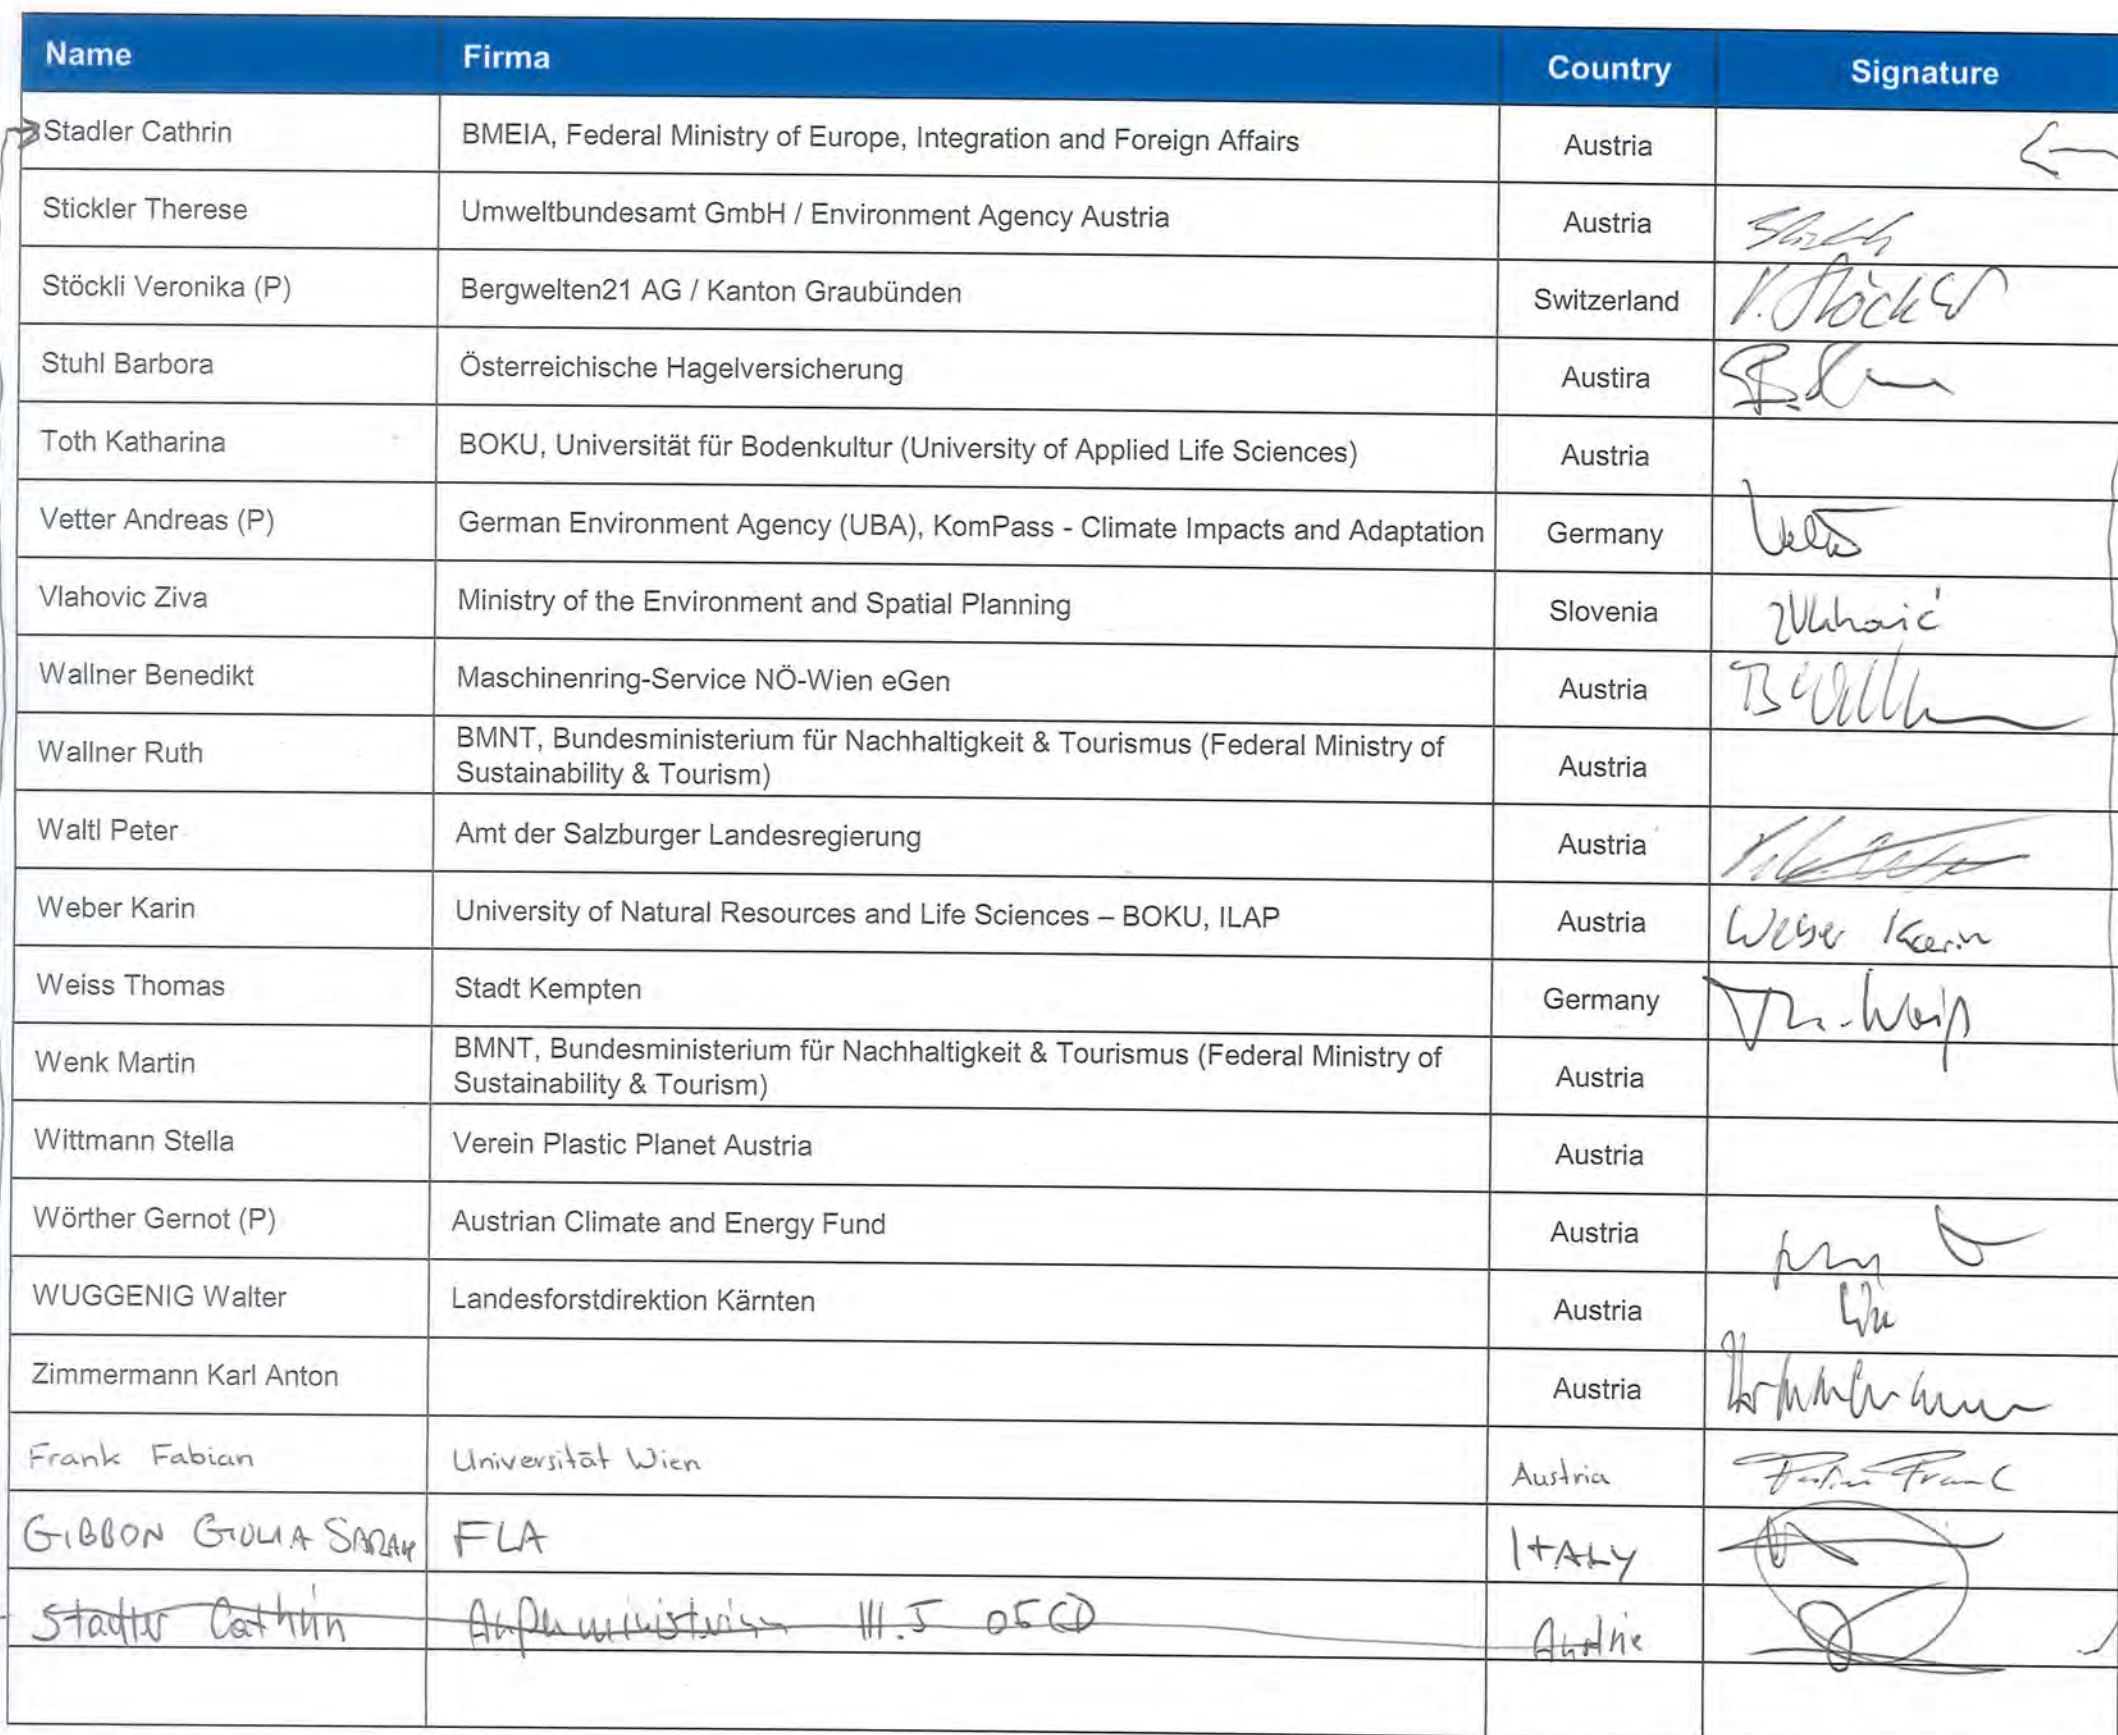 Name Firma Country Signature
Stadler Cathrin BMEIA, Federal Ministry of Europe, Integration and Foreign Affairs Austria
Stickler Therese Umweltbundesamt GmbH / Environment Agency Austria Austria
Stöckli Veronika (P) Bergwelten21 AG / Kanton Graubünden Switzerland V. Stöckli
Stuhl Barbora Österreichische Hagelversicherung Austira
Toth Katharina BOKU, Universität für Bodenkultur (University of Applied Life Sciences) Austria
Vetter Andreas (P) German Environment Agency (UBA), KomPass - Climate Impacts and Adaptation Germany
Vlahovic Ziva Ministry of the Environment and Spatial Planning Slovenia ZVlahović
Wallner Benedikt Maschinenring-Service NÖ-Wien eGen Austria
Wallner Ruth BMNT, Bundesministerium für Nachhaltigkeit & Tourismus (Federal Ministry of
Sustainability & Tourism) Austria
Waltl Peter Amt der Salzburger Landesregierung Austria
Weber Karin University of Natural Resources and Life Sciences – BOKU, ILAP Austria Weber Karin
Weiss Thomas Stadt Kempten Germany Th. Weiß
Wenk Martin BMNT, Bundesministerium für Nachhaltigkeit & Tourismus (Federal Ministry of
Sustainability & Tourism) Austria
Wittmann Stella Verein Plastic Planet Austria Austria
Wörther Gernot (P) Austrian Climate and Energy Fund Austria
WUGGENIG Walter Landesforstdirektion Kärnten Austria
Zimmermann Karl Anton Austria
Frank Fabian Universität Wien Austria Fabian Frank
GIBBON GIULIA SARAH FLA ITALY
Stadler Cathrin III.5 OECD Austria